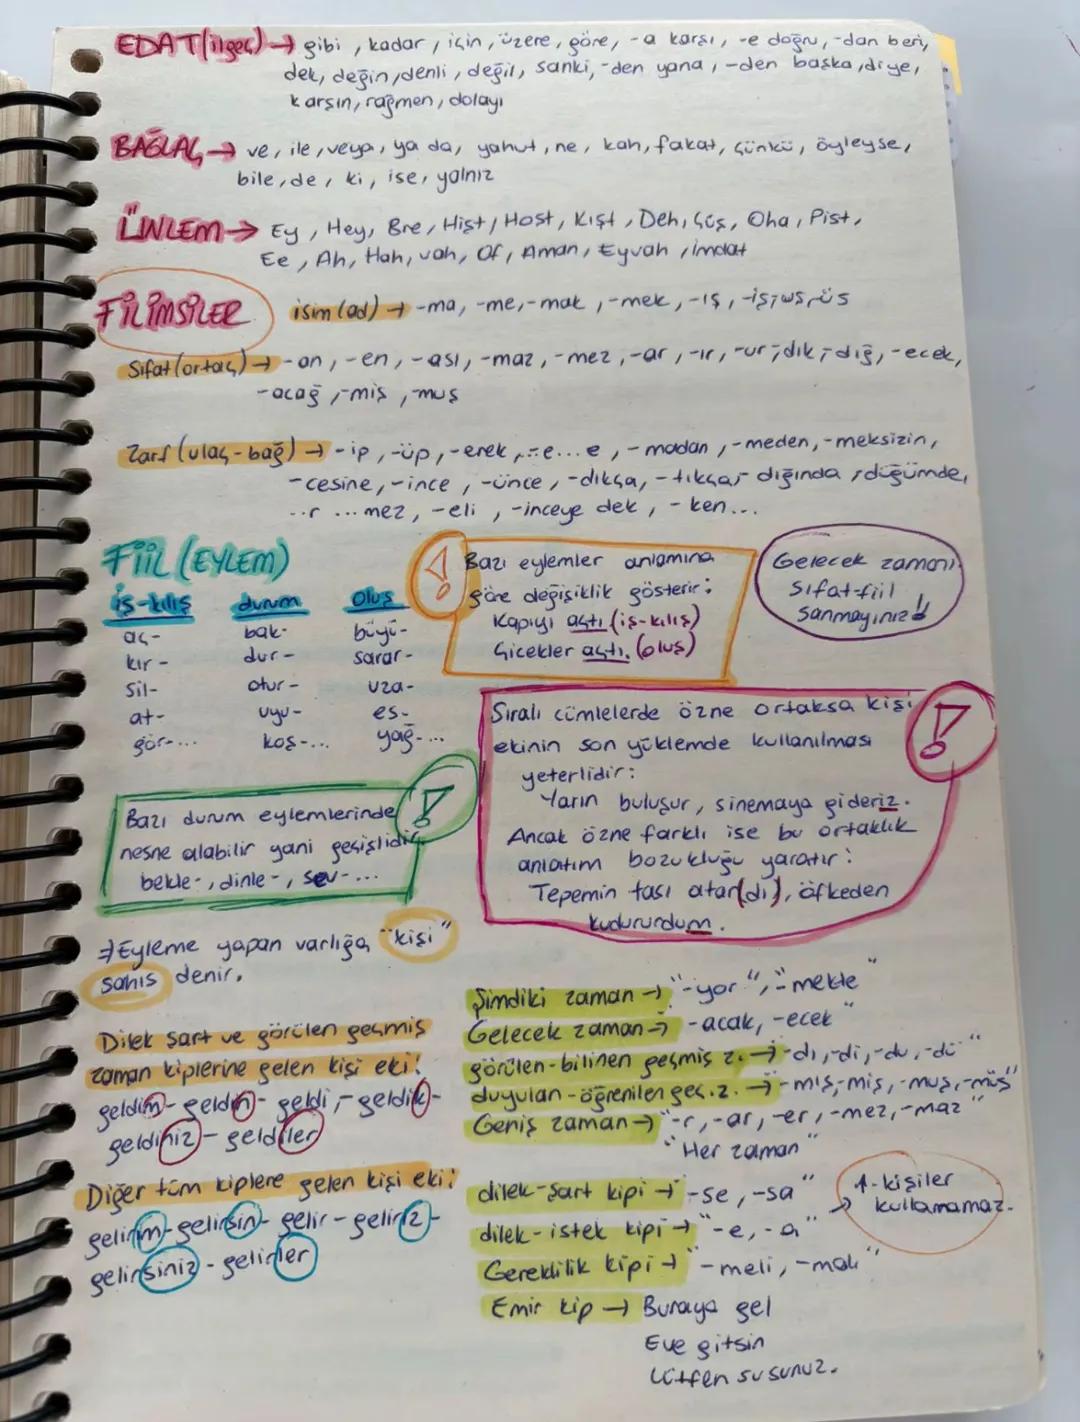 EDAT(ilgeç)→ gibi, kadar, için, üzere, göre, -a karşı, -e doğru, -dan beri,
dek, değin, denli, değil, sanki, -den yana, -den başka, diye,
karşın, rağmen, dolayı
BAĞLAÇ→ ve, ile, veya, ya da, yahut, ne, kah, fakat, çünkü, öyleyse,
bile, de, ki, ise, yalnız
ÜNLEM→ Ey, Hey, Bre, Hişt, Host, Kışt, Deh, Çüş, Oha, Pist,
Ee, Ah, Hah, vah, Of, Aman, Eyvah, imdat
FİLİMSİLER isim (ad) → -ma, -me, -mak, -mek, -ış, -iş, -uş, -üş
Sıfat (ortaç) → -an, -en, -ası, -maz, -mez, -ar, -ır, -ur, -dık, -dığ, -ecek,
-acağ, -miş, -muş
Zarf (ulaç-bağ) → -ip, -üp, -erek, -e...e, -madan, -meden, -meksizin,
-cesine, -ince, -ünce, -dıkça, -tıkça, -dığında, -düğümde,
...r ...mez, -eli, -inceye dek, -ken...
FİİL (EYLEM)
iş-kılış durum Oluş
aç- bak- büyü-
kır- dur- sarar-
sil- otur- uza-
at- uyu- es-
gör-... koş-... yağ-...
! Bazı eylemler anlamına
göre değişiklik gösterir:
Kapıyı açtı (iş-kılış)
Çicekler açtı. (oluş)
Gelecek zamanı
Sıfat-fiil
sanmayınız!!
Sıralı cümlelerde özne ortaksa kişi !
ekinin son yüklemde kullanılması
yeterlidir:
Yarın buluşur, sinemaya gideriz.
Ancak özne farklı ise bu ortaklık
anlatım bozukluğu yaratır:
Tepemin tası atar(dı), öfkeden
kudururdum.
Bazı durum eylemlerinde !
nesne alabilir yani geçişlidir.
bekle-, dinle-, sev-...
→Eyleme yapan varlığa "kişi"
şahıs denir.
Dilek şart ve görülen geçmiş
zaman kiplerine gelen kişi eki:
geldim- geldin- geldi,- geldik-
geldiniz- geldiler
Diğer tüm kiplere gelen kişi eki:
gelirim- gelirsin- gelir- geliriz-
gelirsiniz- gelirler
Şimdiki zaman → "-yor", "-mekte"
Gelecek zaman→ -acak, -ecek"
görülen-bilinen geçmiş z.→ -dı, -di, -du, -dü"
duyulan-öğrenilen geç.z.→ -mış, -miş, -muş, -müş"
Geniş zaman→ "-r, -ar, -er, -mez, -maz"
"Her zaman"
dilek-şart kipi → "-se, -sa"
dilek-istek kipi→ "-e, -a"
Gereklilik kipi→ "-meli, -malı"
Emir kip → Buraya gel
Eve gitsin
Lütfen susunuz.
1-kişiler
kullanamaz.